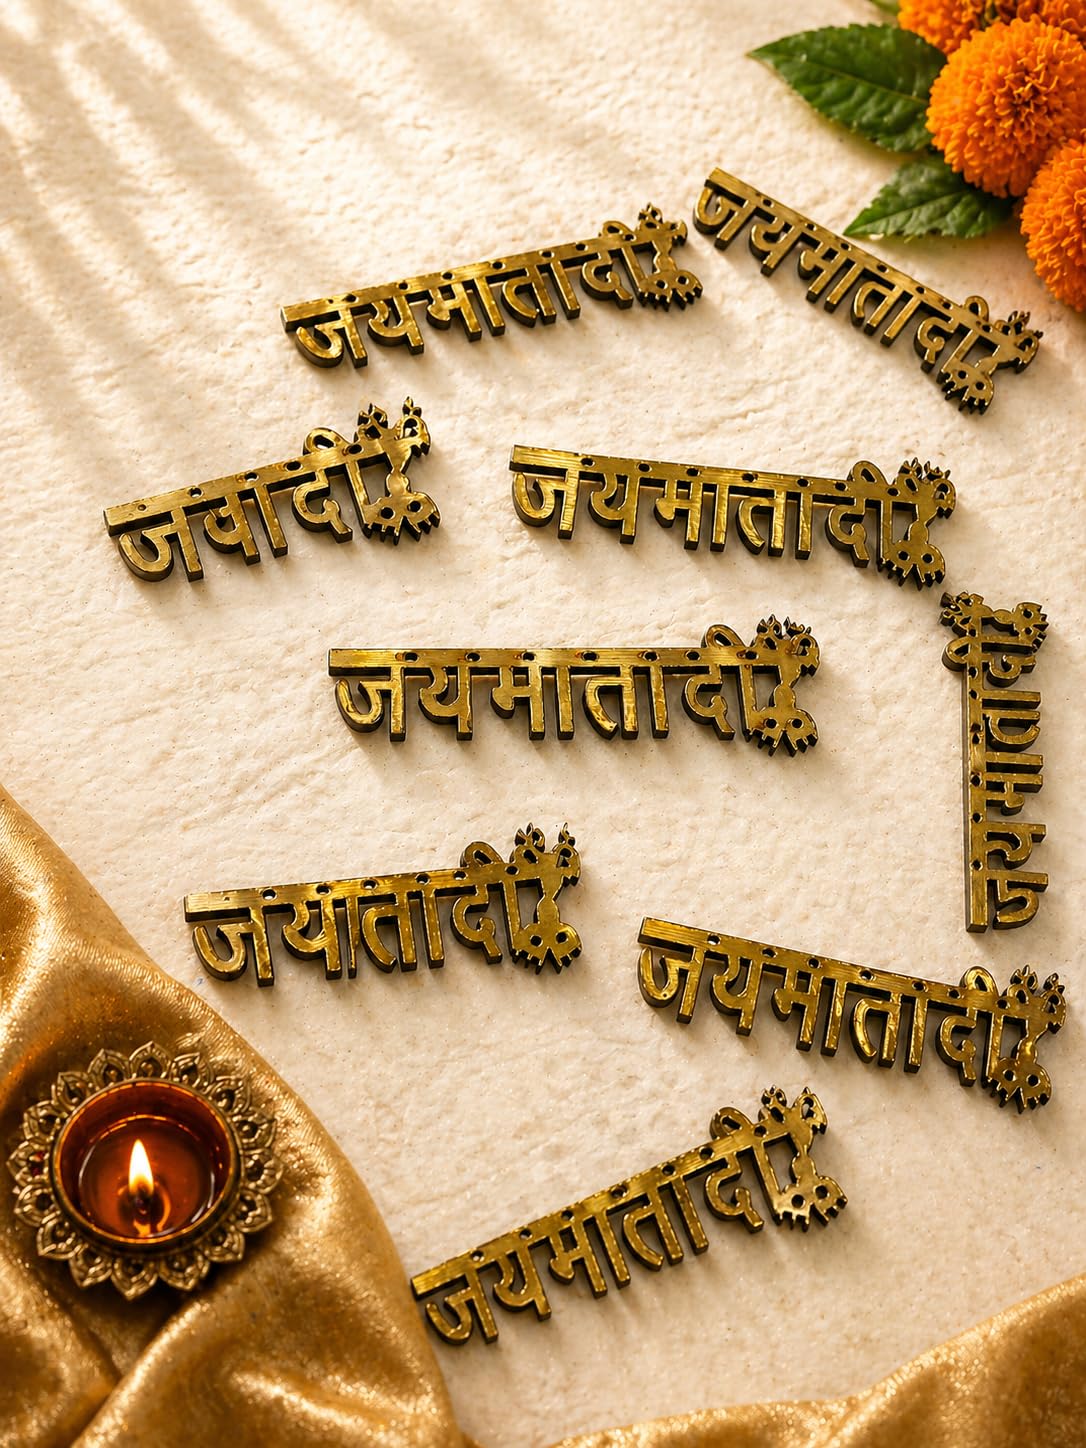 जय माता दी
जय माता दी
जवादी
जय माता दी
जय माता दी
जय माता दी
जयातादी
जय माता दी
जय माता दी